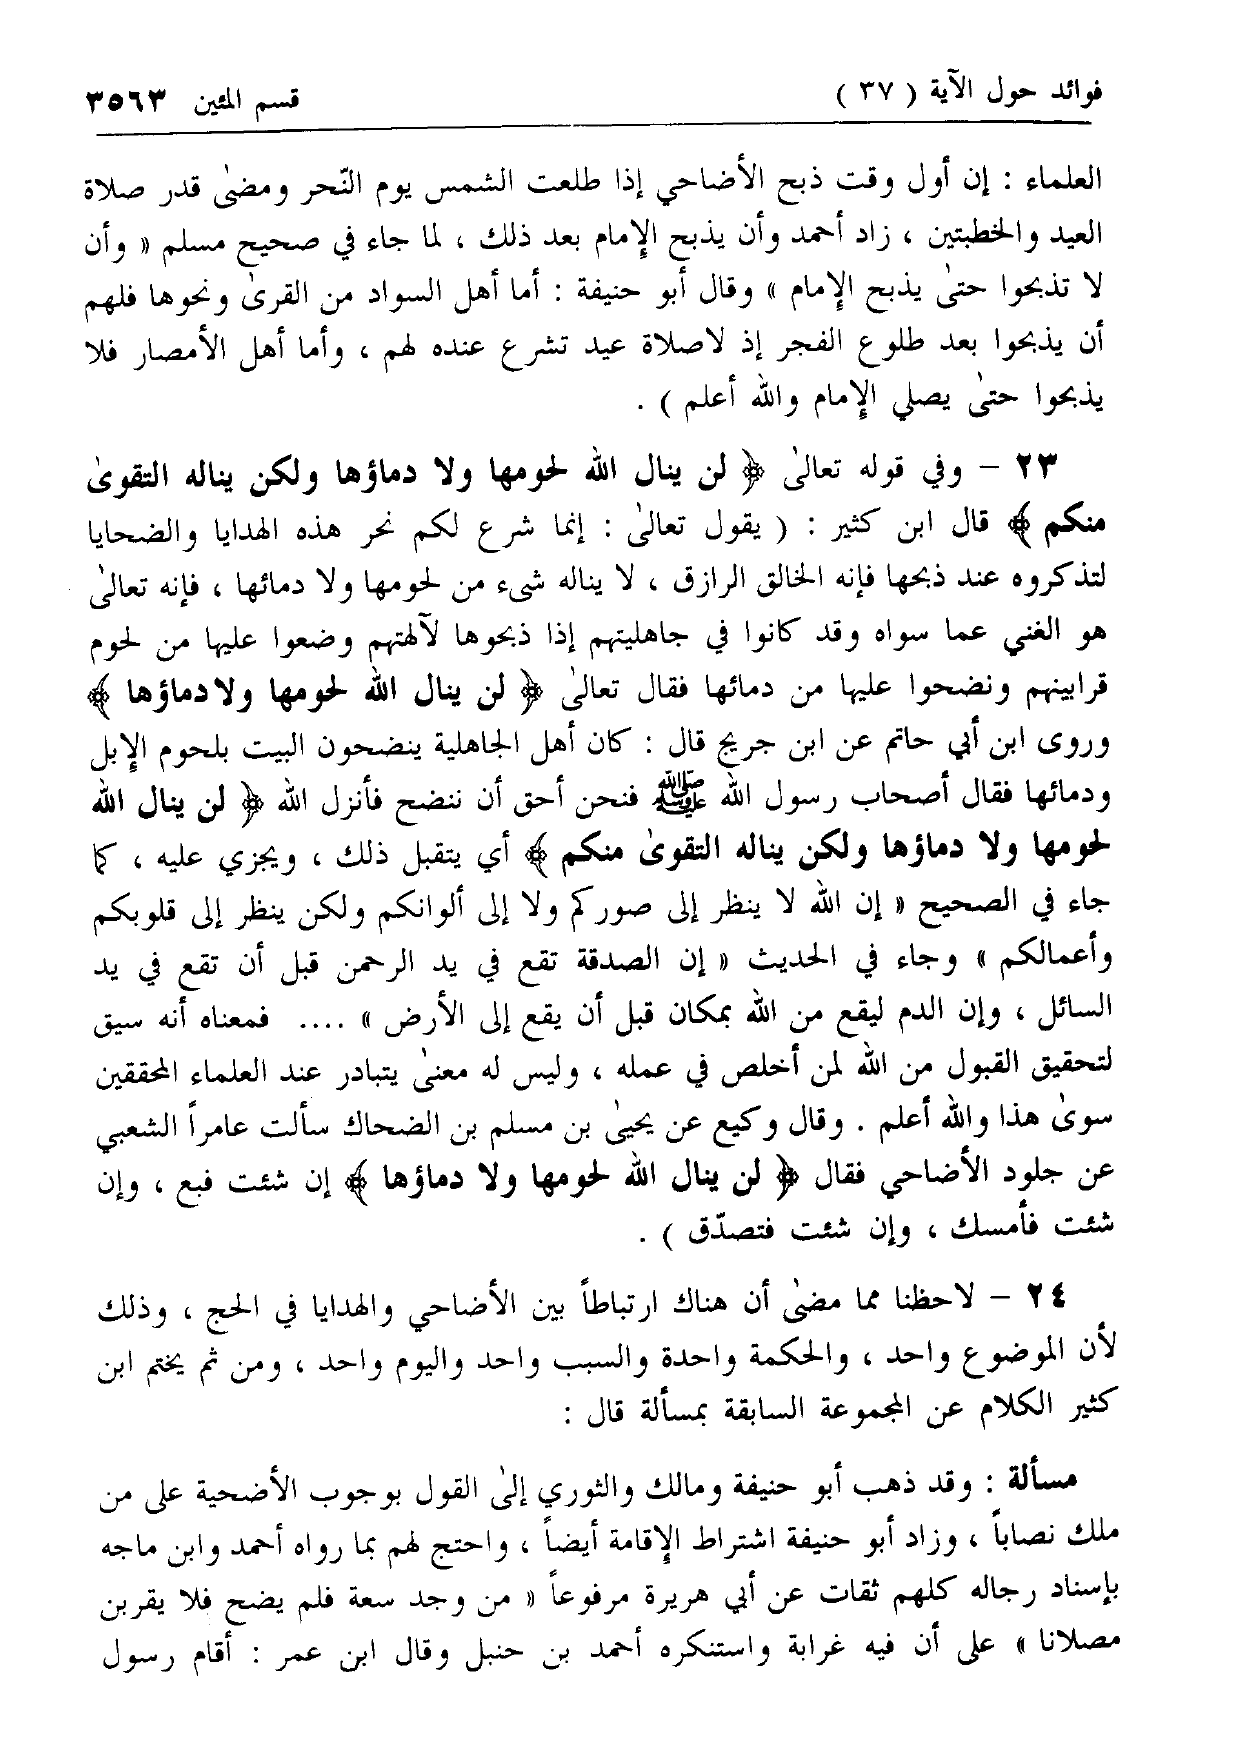 فوائد حول الآية ( ٣٧ )
قسم المئين ٣٥٦٣
العلماء : إن أول وقت ذبح الأضاحي إذا طلعت الشمس يوم النّحر ومضىٰ قدر صلاة
العيد والخطبتين ، زاد أحمد وأن يذبح الإمام بعد ذلك ، لما جاء في صحيح مسلم « وأن
لا تذبحوا حتىٰ يذبح الإمام » وقال أبو حنيفة : أما أهل السواد من القرىٰ ونحوها فلهم
أن يذبحوا بعد طلوع الفجر إذ لاصلاة عيد تشرع عنده لهم ، وأما أهل الأمصار فلا
يذبحوا حتىٰ يصلي الإمام والله أعلم ) .
٢٣ – وفي قوله تعالىٰ ﴿ لن ينال الله لحومها ولا دماؤها ولكن يناله التقوىٰ
منكم ﴾ قال ابن كثير : ( يقول تعالىٰ : إنما شرع لكم نحر هذه الهدايا والضحايا
لتذكروه عند ذبحها فإنه الخالق الرازق ، لا يناله شىء من لحومها ولا دمائها ، فإنه تعالىٰ
هو الغني عما سواه وقد كانوا في جاهليتهم إذا ذبحوها لآلهتهم وضعوا عليها من لحوم
قرابينهم ونضحوا عليها من دمائها فقال تعالىٰ ﴿ لن ينال الله لحومها ولادماؤها ﴾
وروى ابن أبي حاتم عن ابن جريج قال : كان أهل الجاهلية ينضحون البيت بلحوم الإبل
ودمائها فقال أصحاب رسول الله ﷺ فنحن أحق أن ننضح فأنزل الله ﴿ لن ينال الله
لحومها ولا دماؤها ولكن يناله التقوىٰ منكم ﴾ أي يتقبل ذلك ، ويجزي عليه ، كما
جاء في الصحيح « إن الله لا ينظر إلى صوركم ولا إلى ألوانكم ولكن ينظر إلى قلوبكم
وأعمالكم » وجاء في الحديث « إن الصدقة تقع في يد الرحمن قبل أن تقع في يد
السائل ، وإن الدم ليقع من الله بمكان قبل أن يقع إلى الأرض » .... فمعناه أنه سيق
لتحقيق القبول من الله لمن أخلص في عمله ، وليس له معنىٰ يتبادر عند العلماء المحققين
سوىٰ هذا والله أعلم . وقال وكيع عن يحيىٰ بن مسلم بن الضحاك سألت عامراً الشعبي
عن جلود الأضاحي فقال ﴿ لن ينال الله لحومها ولا دماؤها ﴾ إن شئت فبع ، وإن
شئت فأمسك ، وإن شئت فتصدّق ) .
٢٤ – لاحظنا مما مضىٰ أن هناك ارتباطاً بين الأضاحي والهدايا في الحج ، وذلك
لأن الموضوع واحد ، والحكمة واحدة والسبب واحد واليوم واحد ، ومن ثم يختم ابن
كثير الكلام عن المجموعة السابقة بمسألة قال :
مسألة : وقد ذهب أبو حنيفة ومالك والثوري إلىٰ القول بوجوب الأضحية على من
ملك نصاباً ، وزاد أبو حنيفة اشتراط الإقامة أيضاً ، واحتج لهم بما رواه أحمد وابن ماجه
بإسناد رجاله كلهم ثقات عن أبي هريرة مرفوعاً « من وجد سعة فلم يضح فلا يقربن
مصلانا » على أن فيه غرابة واستنكره أحمد بن حنبل وقال ابن عمر : أقام رسول